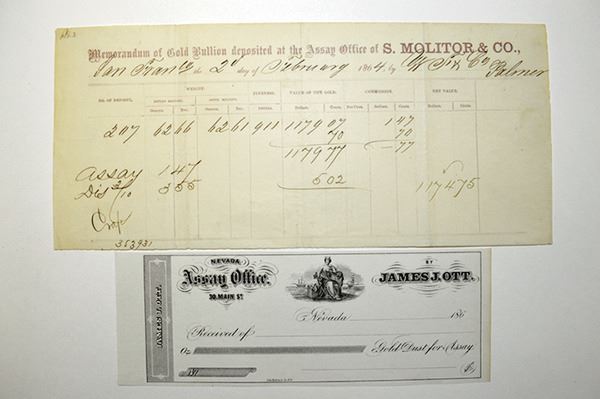 Memorandum of Gold Bullion deposited at the Assay Office of S. MOLITOR & CO.,
San Fran the 2d day of February 1864 by W
Palmer
NO. OF DEPOSIT. WEIGHT. FINENESS. VALUE OF THE GOLD. COMMISSION. NET VALUE.
BEFORE MELTING. AFTER MELTING.
Ounces. Dec. Ounces. Dec. Dollars. Cents. Dollars. Cents. Dollars. Cents.
207 62 66 62 61 911 1179 07 1 47
70 70
1179 77 -77
Assay 1 47
Dis 3/10 3 55 5 02 1174 75
353931
NEVADA
Assay Office.
30. MAIN ST.
BY
JAMES J. OTT.
JAMES J. OTT.
Nevada 186
Received of
Oz Gold Dust for Assay.
No $